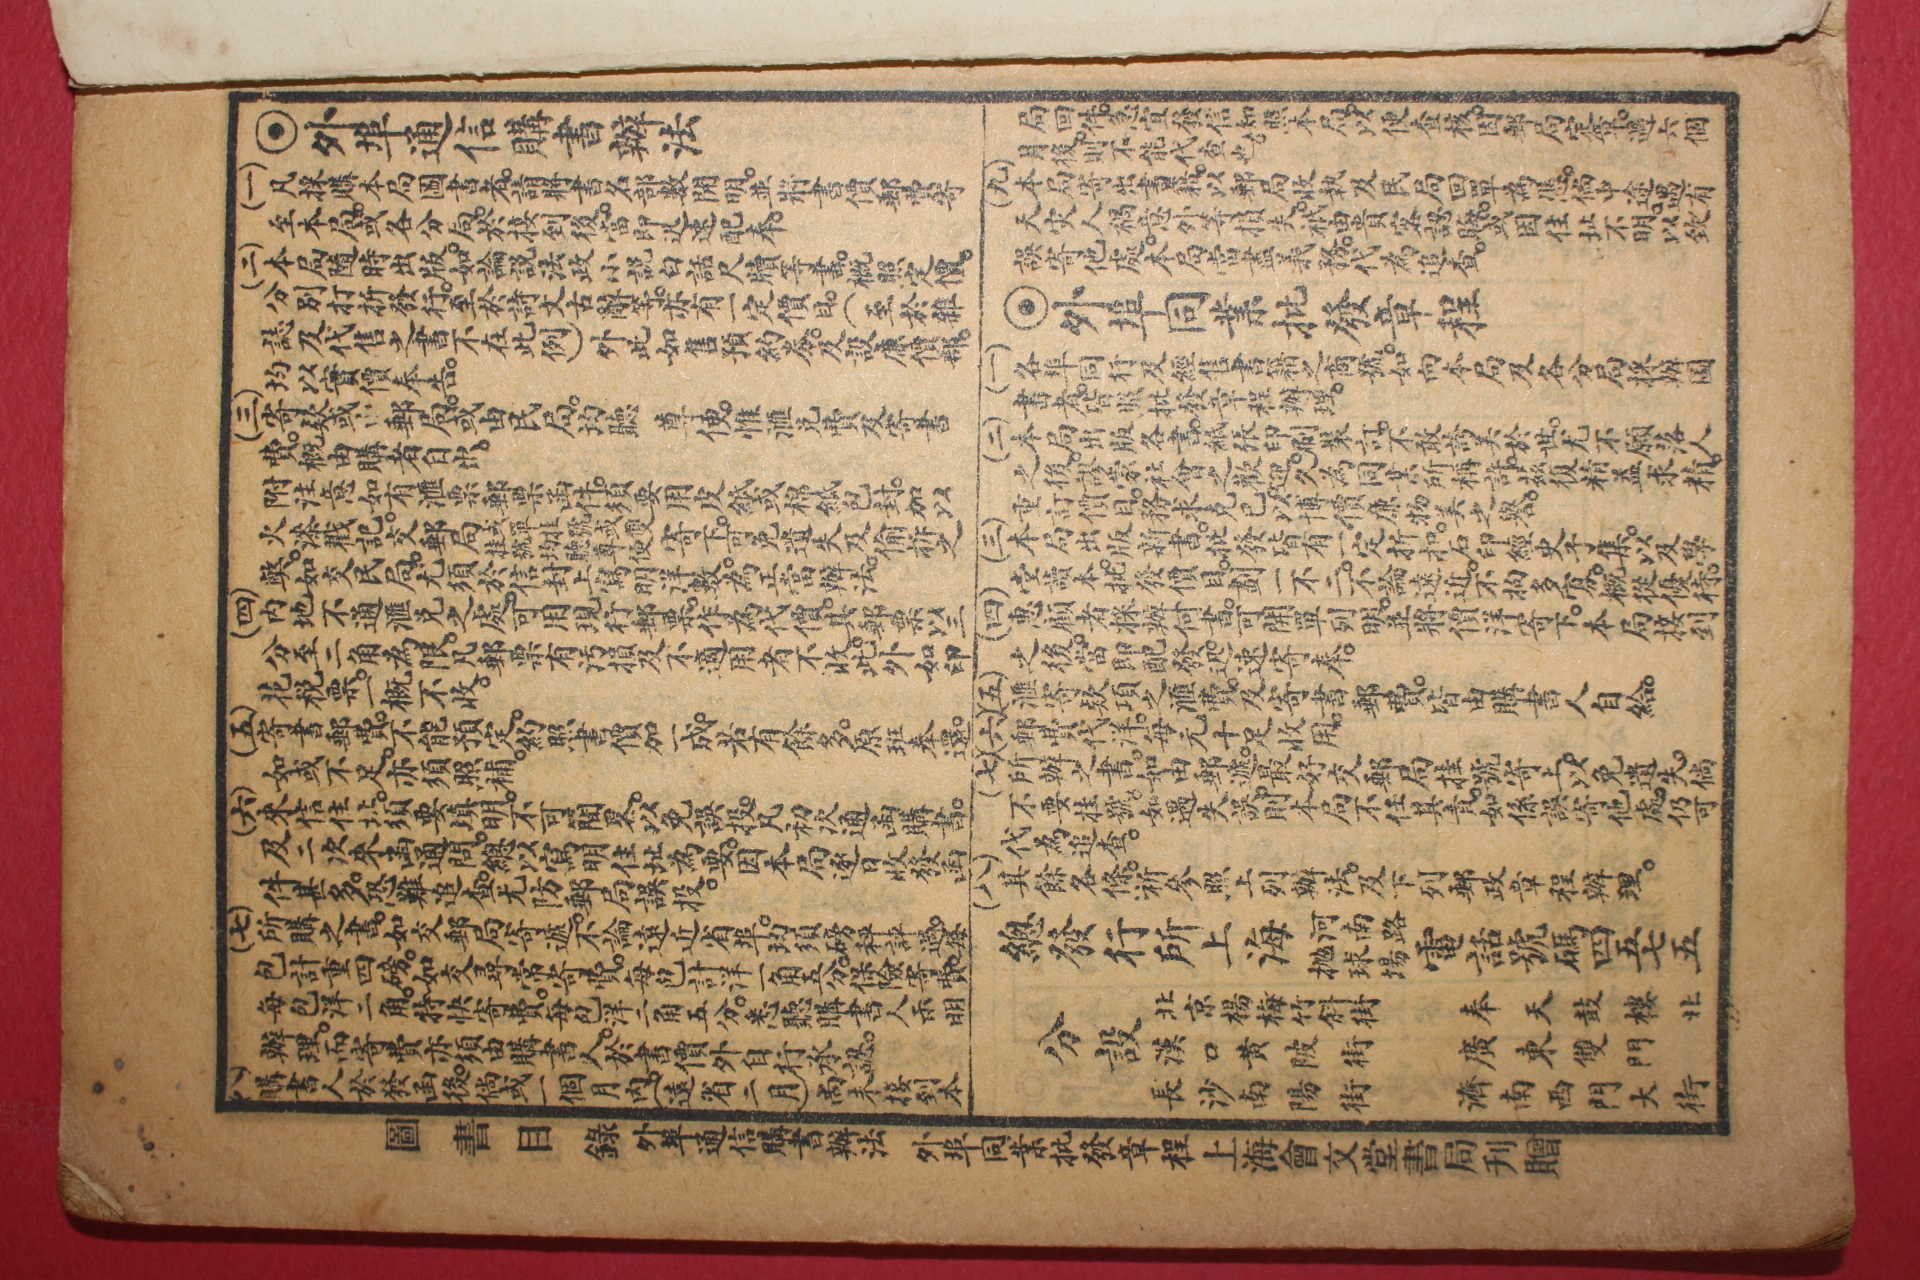 ◉外埠通信購書辦法
(一)凡採購本局圖書者。請將書名部數開明。並將書價郵費寄
至本局。或各分局。於接到後。當即迅速配奉。
(二)本局隨時出版。如論説法政小説白話尺牘等書。概照定價。
分別打折發行。至於詩文古辭等。亦有一定價目。(至於雜
誌及代售之書不在此例)外此如售預約劵。及設廉價部。
均以實價奉告。
(三)寄欵或由郵局。或由民局。均聽 尊便。惟滙兌費及寄書
費。概由購者自出。
附注意如有滙票郵票函件。須要用皮紙或棉紙包封。加以
火漆戳記。交郵局或單挂號或雙挂號均聽尊便寄下。可免遺失及偷拆之
獘。如交民局。尤須於信封上寫明洋數。為正當辦法。
(四)内地不通滙兌之處。可用現行郵票。作為代價。其郵票以三
分至二角為限。凡郵票有污損及不適用者不收。此外如印
花税票。一概不收。
(五)寄書郵費。不能預定。約照書價加一成。若有餘多。原班奉還。
如或不足。亦須照補。
(六)來信住址。須要填明。不可簡畧。以免誤投。凡初次通函購書。
及二次來函通問。總以寫明住址為要。因本局逐日收發函
件甚多。恐難追查。尤防郵局誤投。
(七)所購之書。如交郵局寄遞。不論遠近省埠。均須磅秤評過。每
包計重四磅。如交尋常寄費。每包計洋一角五分。保險寄費。
每包洋二角。特快寄費。每包洋二角五分。悉聽購書人示明
辦理。而寄費亦須由購書人。於書價外自行承認。
(八)購書人於發函後。倘或一個月内。(遠省二月)尚未接到本
局回件。急宜發信知照本局。以便查核。因郵局定章。過六個
月後。則不能代查也。
(九)本局寄出書籍。以郵局收執及民局回單為憑。倘中途遇有
天灾人禍意外等損失。祇由貴客認賠。或因住址不明。以致
誤寄他處。本局當盡義務。代為追查。
◉外埠同業批發章程
(一)各埠同行及經售書籍之商號。如向本局及各分局採辦圖
書者。皆照批發章程辦理。
(二)本局出版各書。紙張印刷裝訂。不敢誇美於世。尤不願落人
之後。謬蒙社會之歡迎。久為同業所稱許。茲復精益求精。
重訂價目。務求克已。以博價廉物美之譽。
(三)本局出版新書。批發皆有一定折扣。石印經史子集。以及學
堂讀本。批發價目。劃一不二。不論遠近。不拘多寡。概從優待。
(四)惠顧者採辦何書。可開單列明。並將價洋寄下。本局接到
之後。當即配發。迅速寄奉。
(五)滙寄欵項之滙費。及寄書郵費。皆由購書人自給。
(六)郵費代洋。每元十足收用。
(七)所辦之書。如由郵遞。最好交郵局挂號寄上。以免遺失。倘
不要挂號。如遇失誤。則本局不任其責。如係誤寄他處。仍可
代為追查。
(八)其餘各條。祈參照上列辦法。及下列郵政章程辦理。
總發行所上海河南路抛球場電話號碼四五七五
分設
北京楊梅竹斜街 奉天鼓樓北
漢口黃陂街 廣東雙門
長沙南陽街 濟南西門大街
圖書目錄 外埠通信購書辦法 外埠同業批發章程 上海會文堂書局刊贈